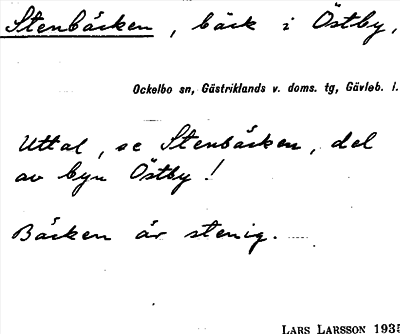 Stenbäcken, bäck i Östby,
Ockelbo sn, Gästriklands v. doms. tg, Gävleb. l.
Uttal, se Stenbäcken, del
av byn Östby!
Bäcken är stenig.
LARS LARSSON 1935